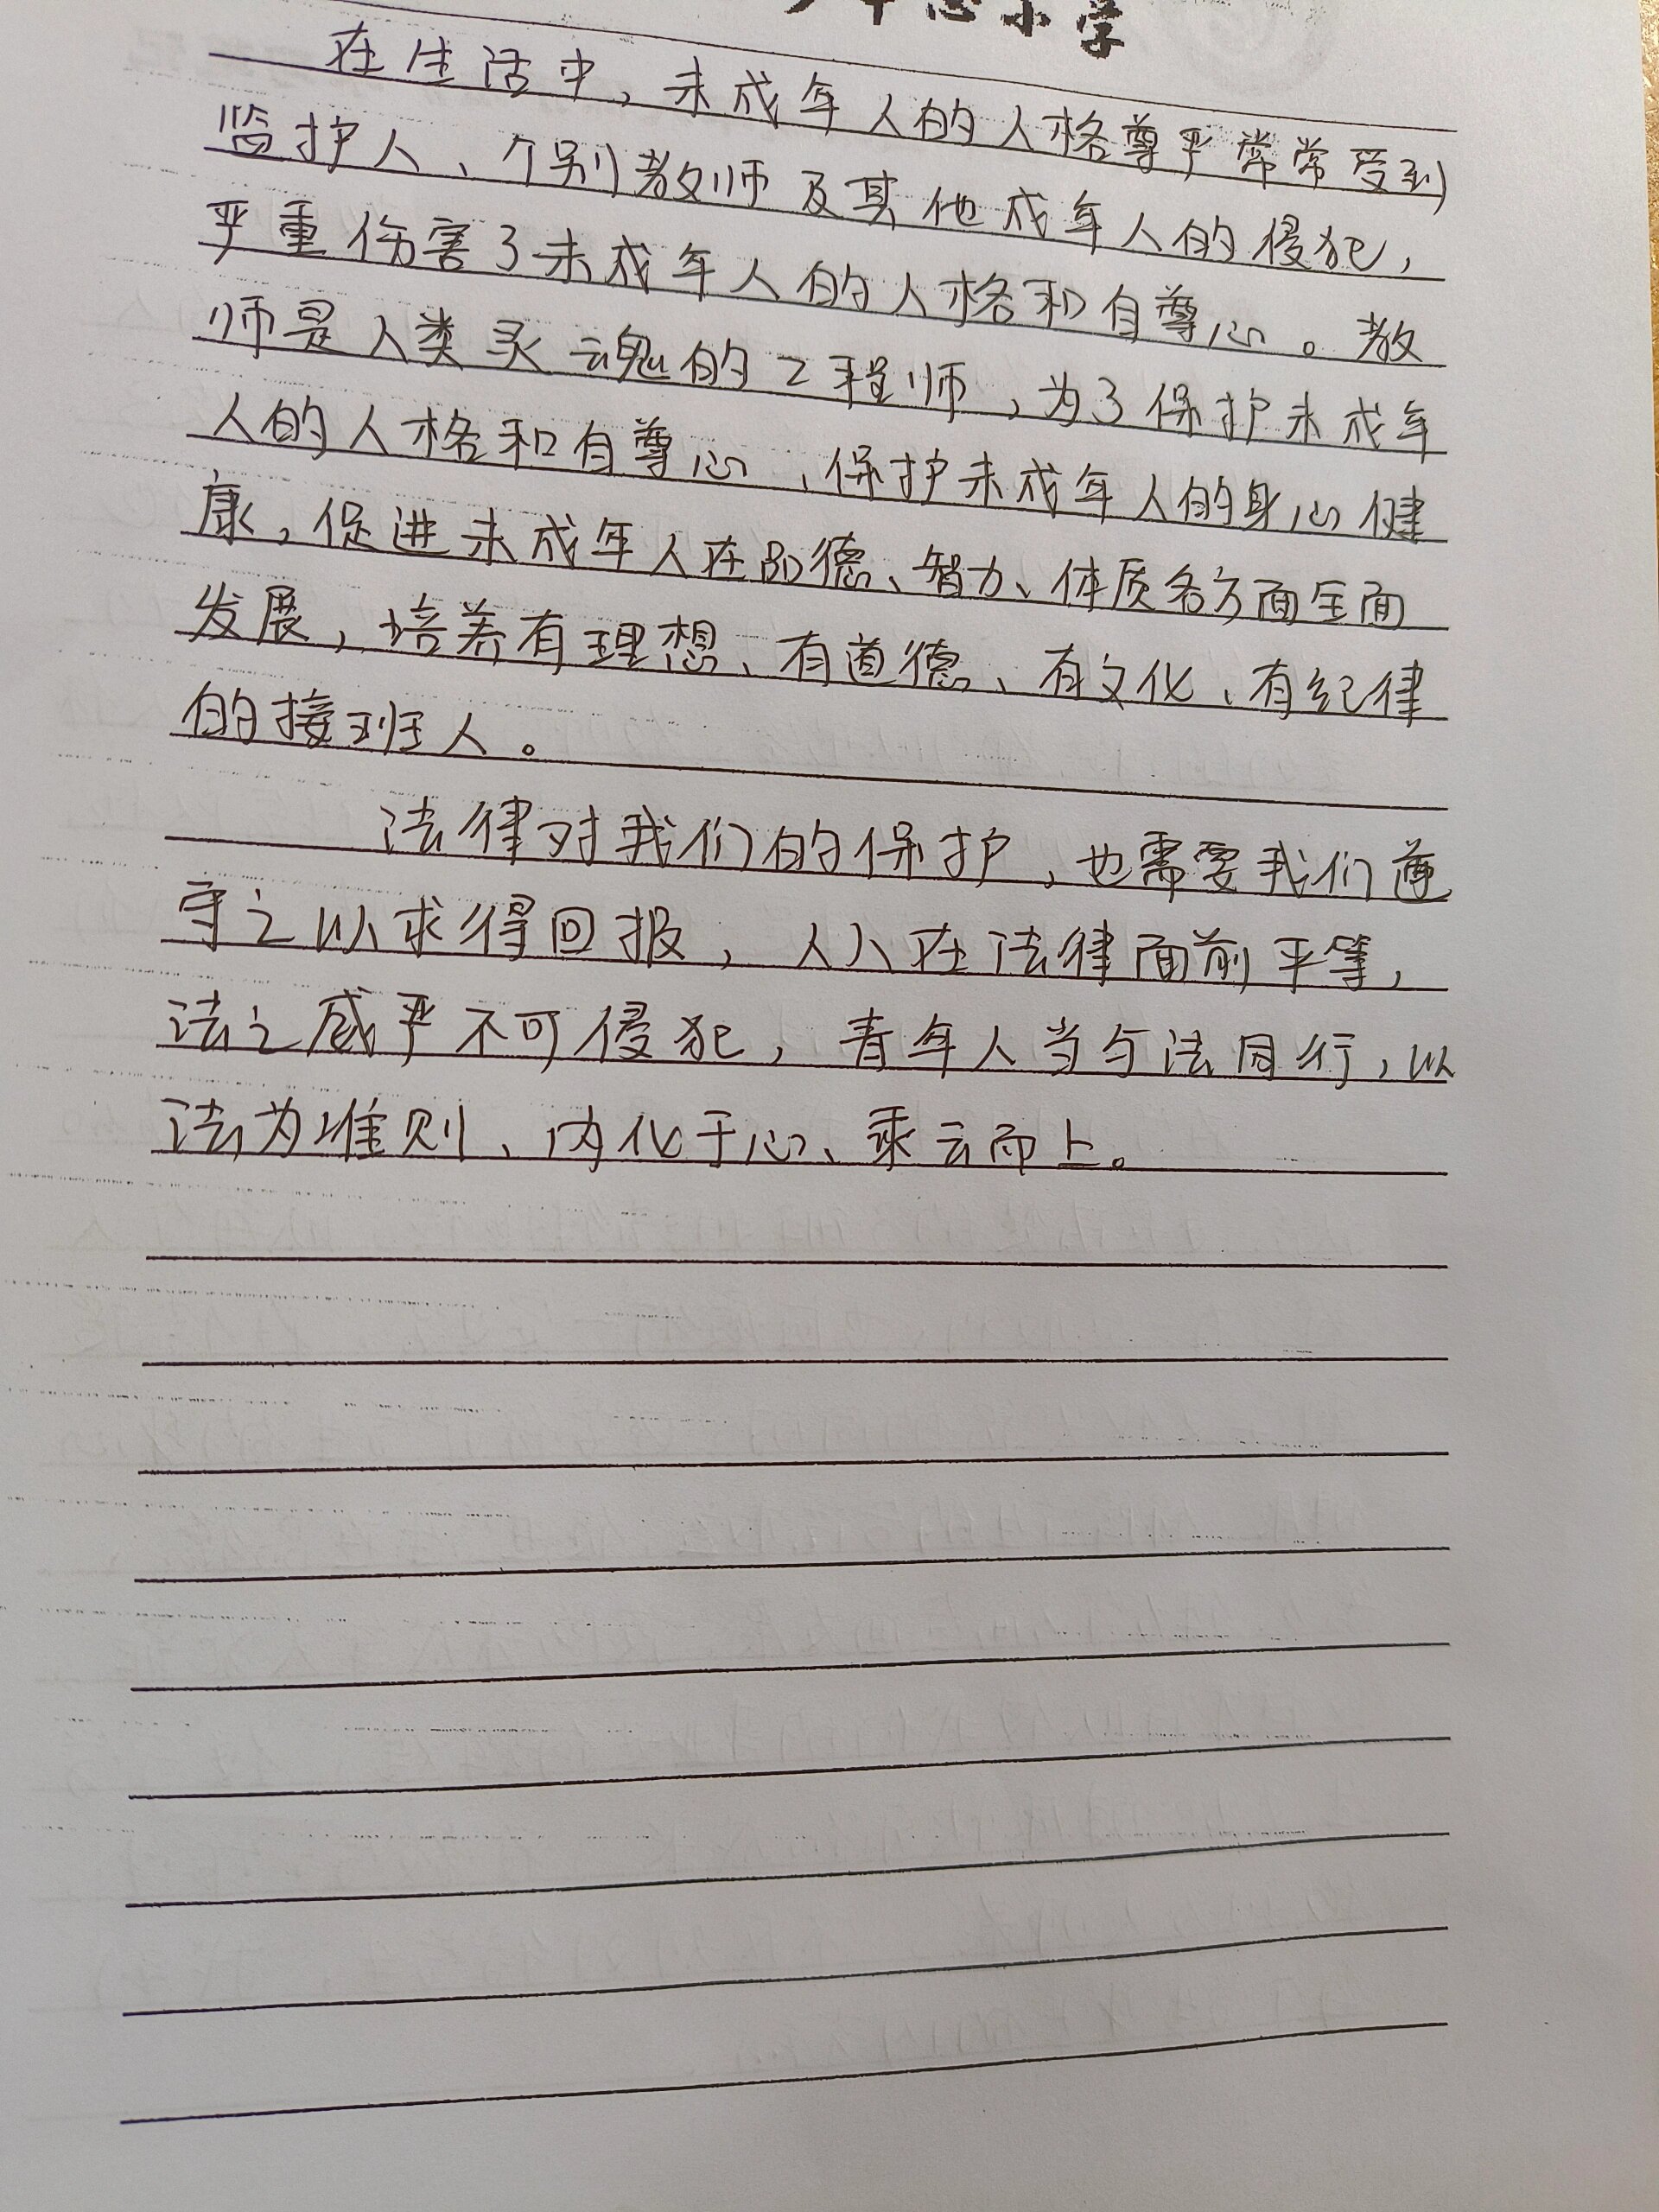 小学
在生活中，未成年人的人格尊严常常受到
监护人、个别教师及其他成年人的侵犯，
严重伤害了未成年人的人格和自尊心。教
师是人类灵魂的工程师，为了保护未成年
人的人格和自尊心，保护未成年人的身心健
康，促进未成年人在品德、智力、体质各方面全面
发展，培养有理想、有道德、有文化、有纪律
的接班人。
法律对我们的保护，也需要我们遵
守之以求得回报，人人在法律面前平等，
法之威严不可侵犯，青年人当与法同行，以
法为准则、内化于心、乘云而上。